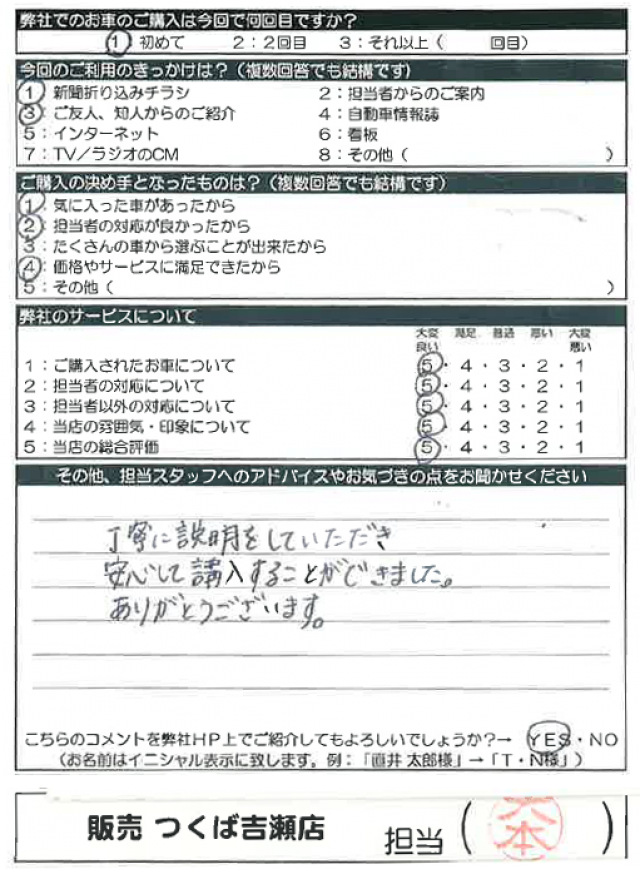 弊社でのお車のご購入は今回で何回目ですか？
1：初めて　2：2回目　3：それ以上（　　回目）
今回のご利用のきっかけは？（複数回答でも結構です）
1：新聞折り込みチラシ　2：担当者からのご案内
3：ご友人、知人からのご紹介　4：自動車情報誌
5：インターネット　6：看板
7：TV／ラジオのCM　8：その他（　　）
ご購入の決め手となったものは？（複数回答でも結構です）
1：気に入った車があったから
2：担当者の対応が良かったから
3：たくさんの車から選ぶことが出来たから
4：価格やサービスに満足できたから
5：その他（　　）
弊社のサービスについて
大変良い　満足　普通　悪い　大変悪い
1：ご購入されたお車について　5・4・3・2・1
2：担当者の対応について　5・4・3・2・1
3：担当者以外の対応について　5・4・3・2・1
4：当店の雰囲気・印象について　5・4・3・2・1
5：当店の総合評価　5・4・3・2・1
その他、担当スタッフへのアドバイスやお気づきの点をお聞かせください
丁寧に説明をしていただき
安心して購入することができました。
ありがとうございます。
こちらのコメントを弊社HP上でご紹介してもよろしいでしょうか？→　YES・NO
（お名前はイニシャル表示に致します。例：「直井 太郎様」→「T・N様」）
販売 つくば吉瀬店　担当（大本）